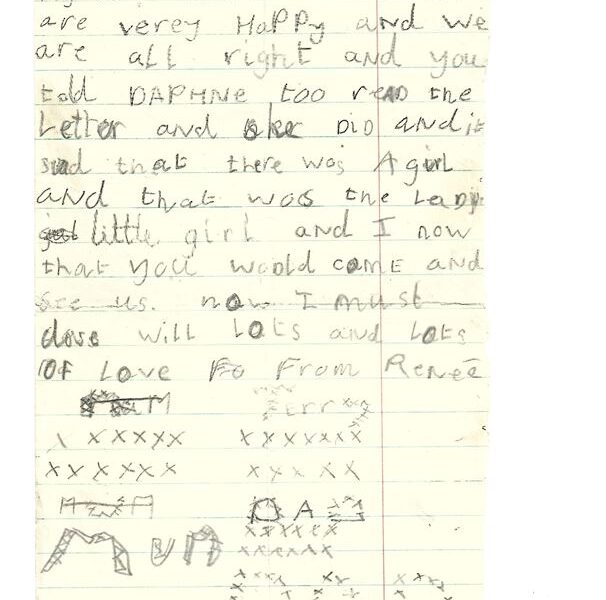 are verey HaPPy and we
are all right and you
told DAPHNe too reAD the
Letter and shee DID and it
sad that there was A girl
and that was the LaDy
little girl and I now
that you woold comE and
see us. now I must
close will Lots and Lots
OF Love Fo From Renēe
X X X X X X
X X X X X X X
X X X X X X
X X X X X
DAD
X X X X X X
Mum
X X X X X X